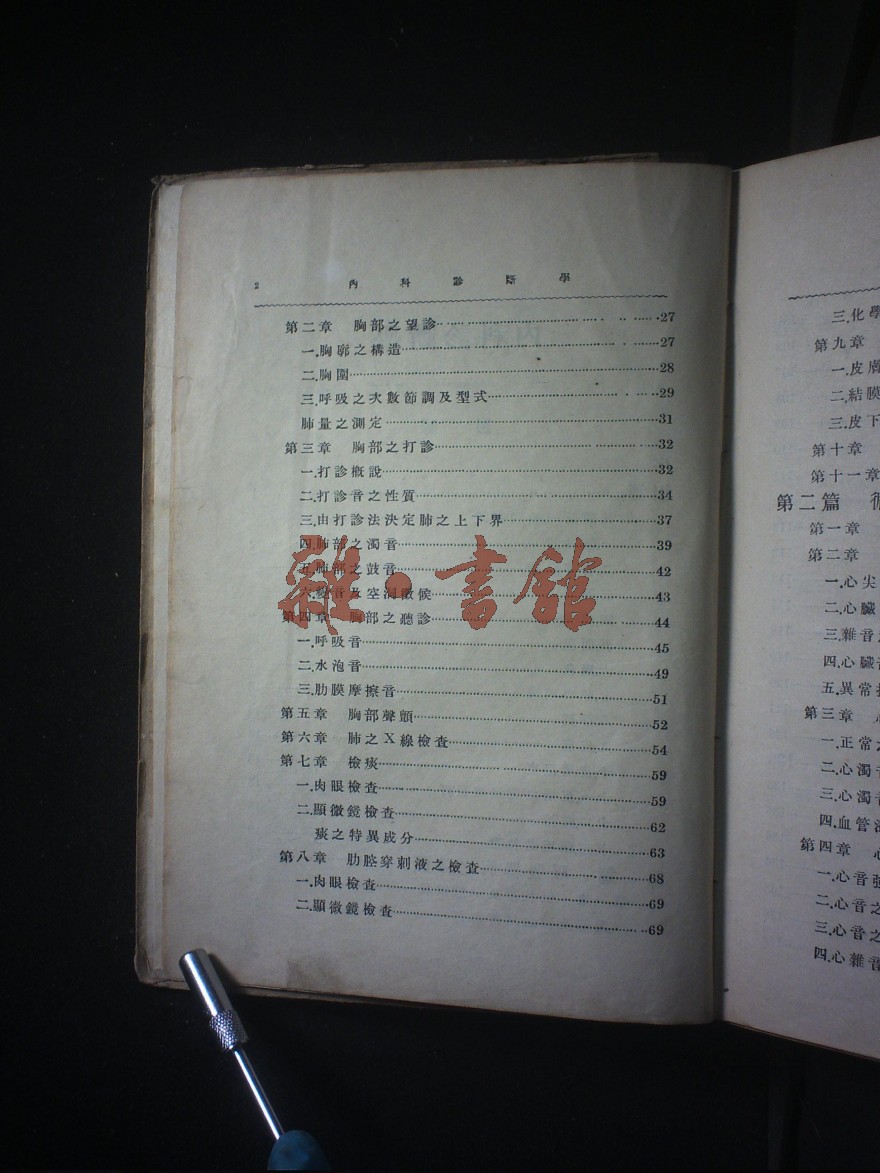 2 內科診斷學
第二章 胸部之望診 27
一.胸廓之構造 27
二.胸圍 28
三.呼吸之次數節調及型式 29
肺量之測定 31
第三章 胸部之打診 32
一.打診槪說 32
二.打診音之性質 34
三.由打診法決定肺之上下界 37
四.肺部之濁音 39
五.肺部之鼓音 42
六.變音及空洞徵候 43
第四章 胸部之聽診 44
一.呼吸音 45
二.水泡音 49
三.肋膜摩擦音 51
第五章 胸部聲顫 52
第六章 肺之X線檢查 54
第七章 檢痰 59
一.肉眼檢查 59
二.顯微鏡檢查 62
痰之特異成分 63
第八章 肋腔穿刺液之檢查 68
一.肉眼檢查 69
二.顯微鏡檢查 69
雜·書館
三.化學
第九章
一.皮膚
二.結膜
三.皮下
第十章
第十一章
第二篇
第一章
第二章
一.心尖
二.心臟
三.雜音
四.心臟
五.異常
第三章
一.正常
二.心濁
三.心濁
四.血管
第四章
一.心音
二.心音之
三.心音之
四.心雜音